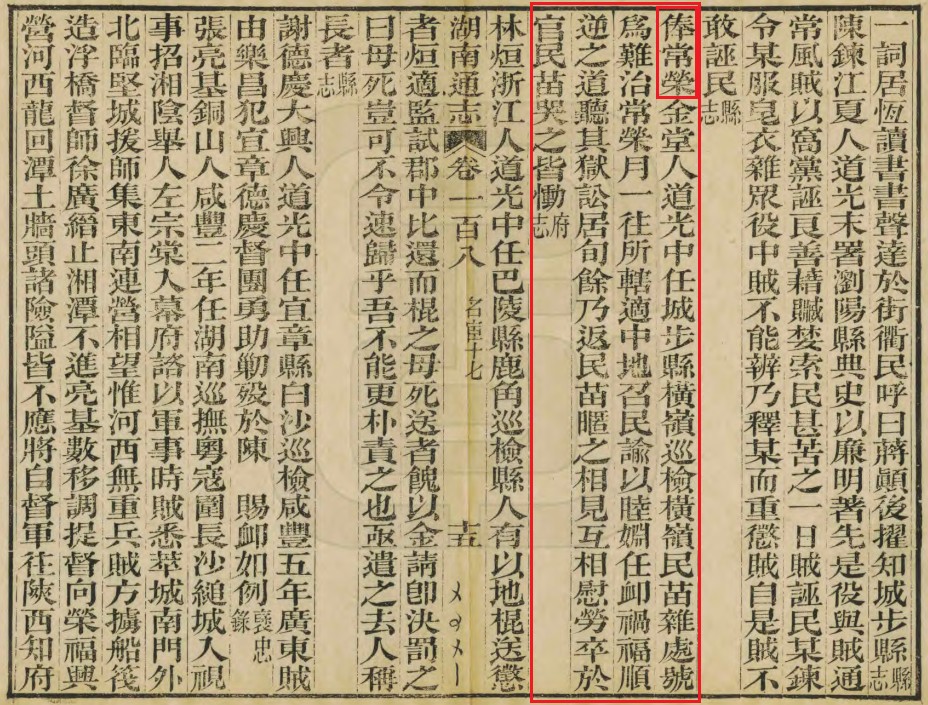 一詞居恆讀書書聲達於街衢民呼曰蔣顚後擢知城步縣縣志
陳鍊江夏人道光末署瀏陽縣典史以廉明著先是役與賊通
常風賊以窩黨誣良善藉贓婪索民甚苦之一日賊誣民某鍊
令某服皂衣雜眾役中賊不能辨乃釋某而重懲賊自是賊不
敢誣民縣志
俸常榮金堂人道光中任城步縣橫嶺巡檢橫嶺民苗雜處號
爲難治常榮月一往所轄適中地召民諭以睦婣任卹禍福順
逆之道聽其獄訟居旬餘乃返民苗暱之相見互相慰勞卒於
官民苗哭之皆慟府志
林烜浙江人道光中任巴陵縣鹿角巡檢縣人有以地棍送懲
湖南通志 卷一百八 名宦十七 十五
者烜適監試郡中比還而棍之母死送者餽以金請卽決罰之
曰母死豈可不令速歸乎吾不能更朴責之也亟遣之去人稱
長者縣志
謝德慶大興人道光中任宜章縣白沙巡檢咸豐五年廣東賊
由樂昌犯宜章德慶督團勇助勦歿於陳 賜卹如例褒忠錄
張亮基銅山人咸豐二年任湖南巡撫粵寇圍長沙縋城入視
事招湘陰舉人左宗棠入幕府諮以軍事時賊悉萃城南門外
北臨堅城援師集東南連營相望惟河西無重兵賊方擄船筏
造浮橋督師徐廣縉止湘潭不進亮基數移調提督向榮福興
營河西龍回潭土牆頭諸險隘皆不應將自督軍往陝西知府